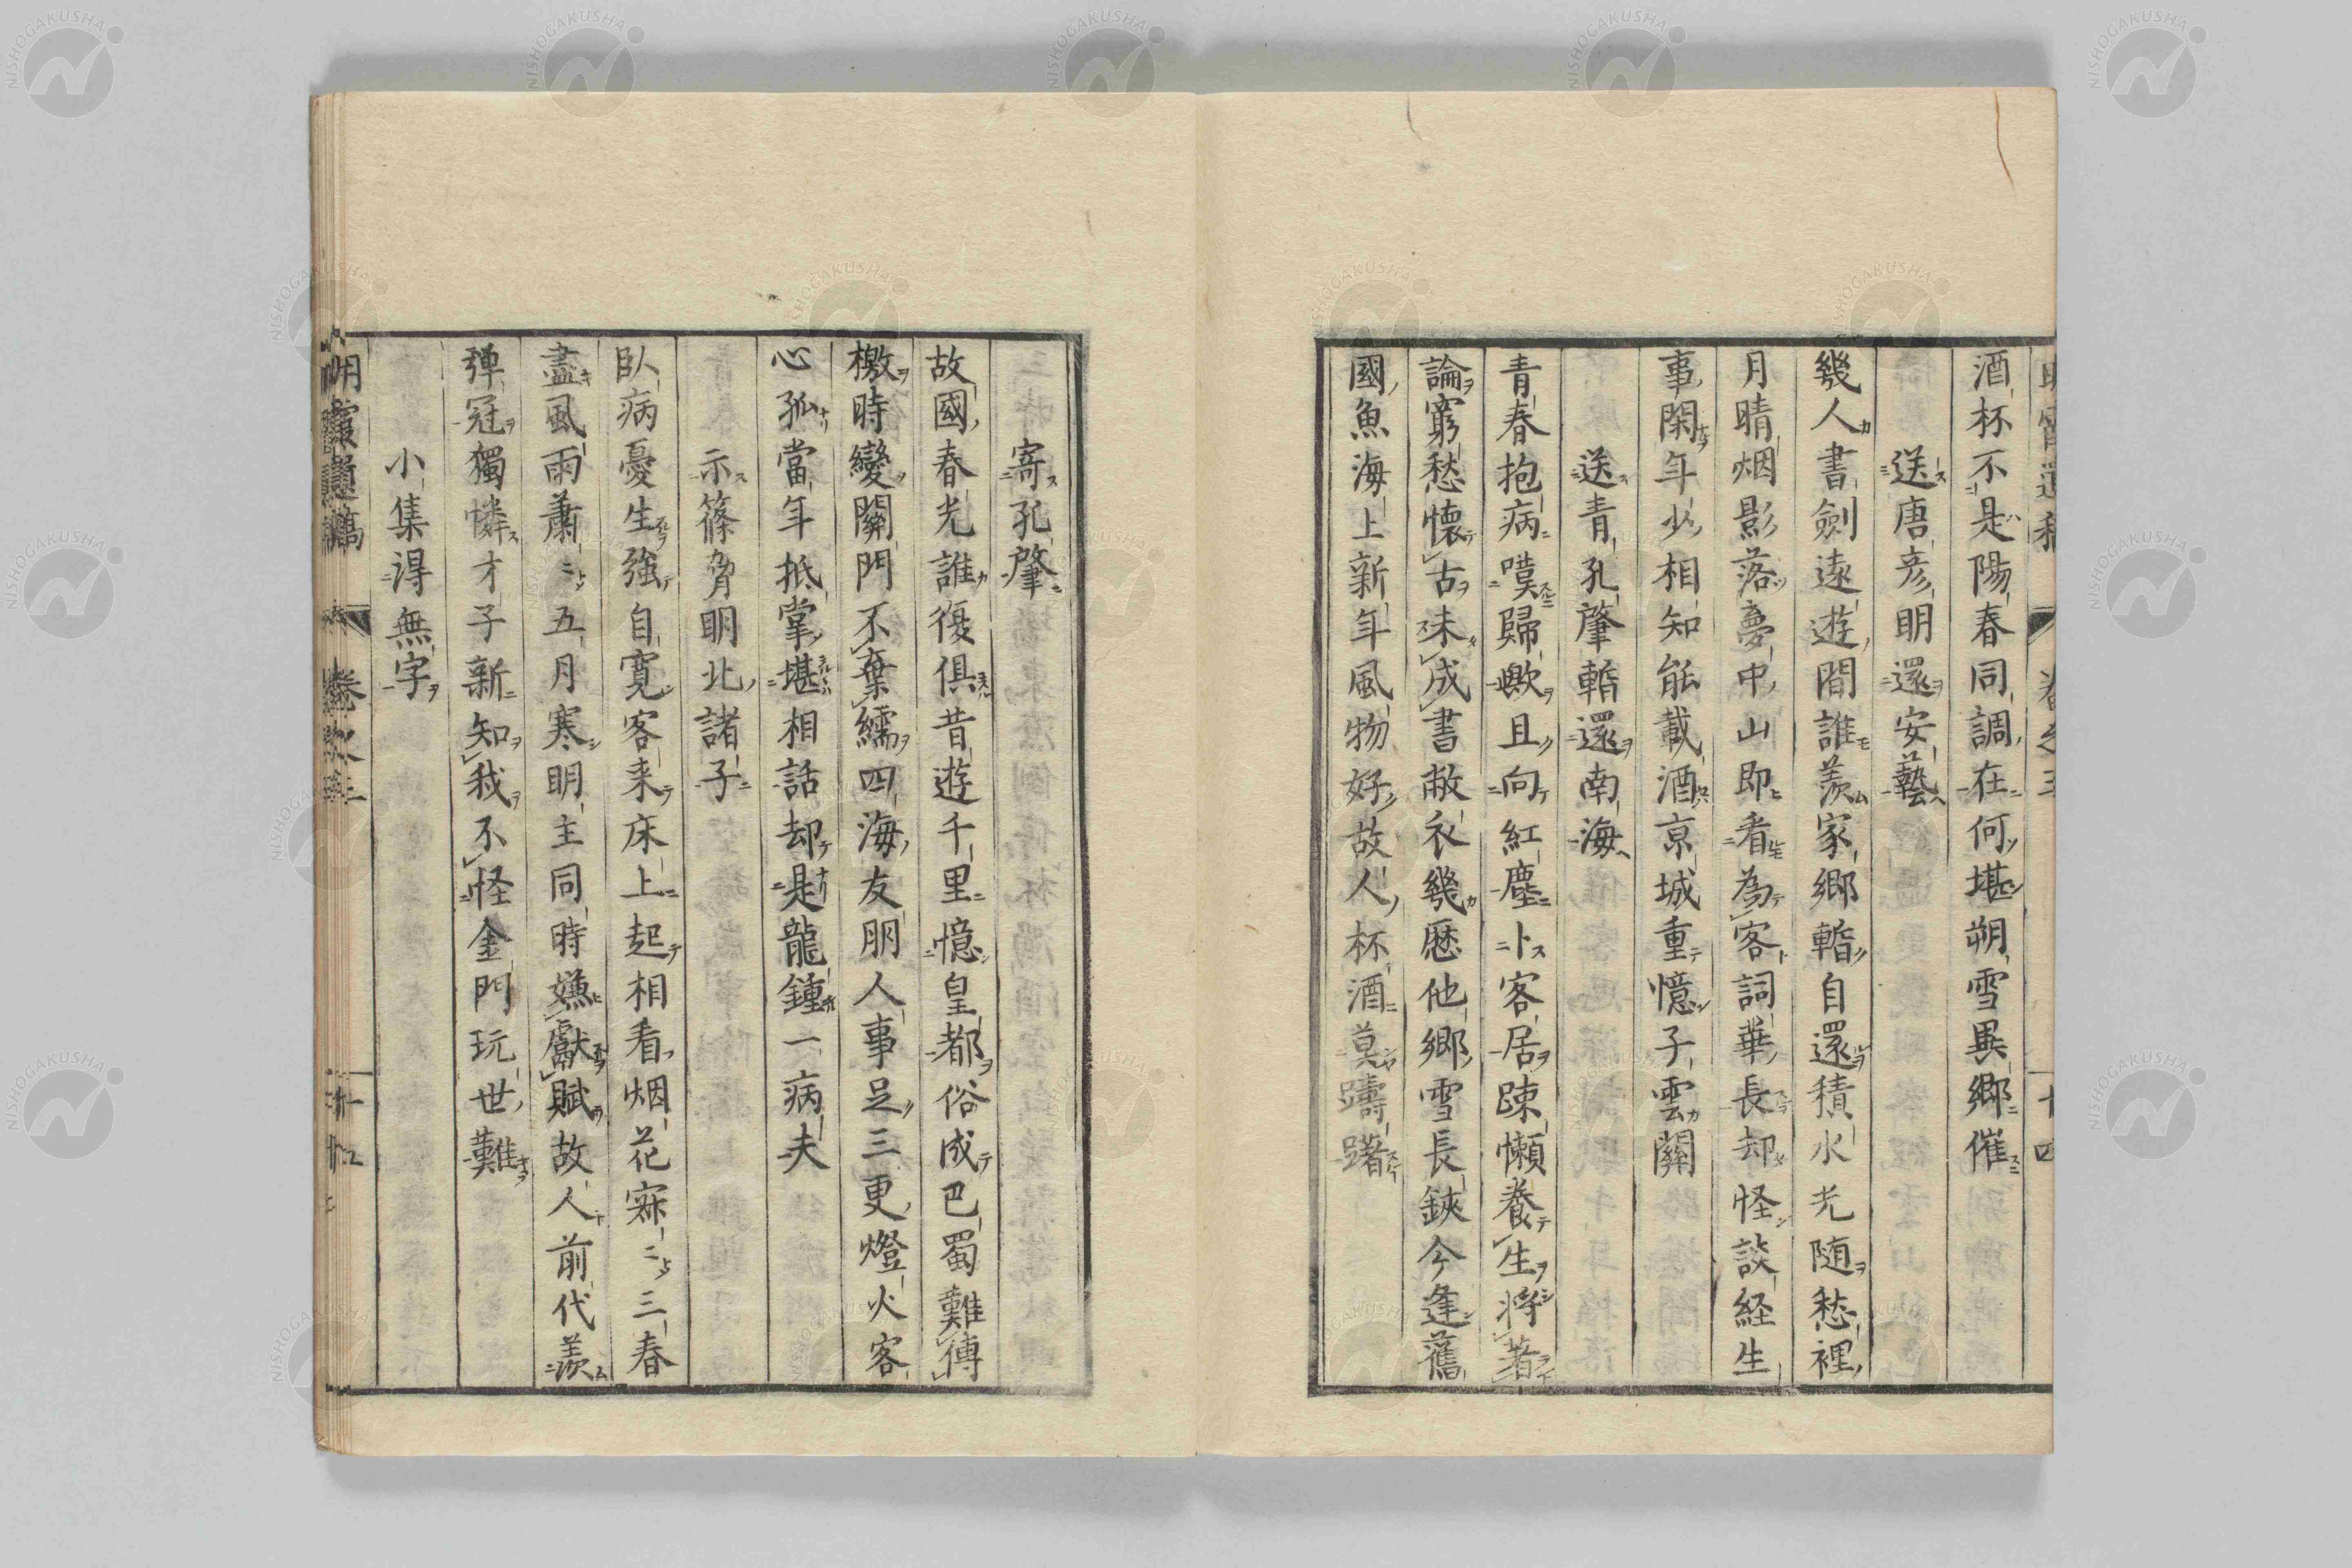 酒杯不是陽春同調在何堪朔雪異郷催
送唐彦明還安藝
幾人書劍遠遊間誰羨家郷暫自還積水光随愁裡
月晴烟影落夢中山即看為客詞華長却怪談経生
事閑年少相知能載酒京城重憶子雲關
送青孔肇暫還南海
青春抱病嘆歸歟且向紅塵卜客居踈懶養生將著
論窮愁懷古未成書敝衣幾歴他郷雪長鋏今逢舊
國魚海上新年風物好故人杯酒莫躊躇
寄孔肇
故國春光誰復俱昔遊千里憶皇都俗成巴蜀難傳
檄時變關門不棄繻四海友朋人事足三更燈火客
心孤當年抵掌堪相話却是龍鍾一病夫
示篠脅明北諸子
臥病憂生強自寛客来床上起相看烟花寂〻三春
盡風雨蕭〻五月寒明主同時嫌獻賦故人前代羨
彈冠獨憐才子新知我不怪金門玩世難
小集得無字
卷之三
NISHOGAKUSHA